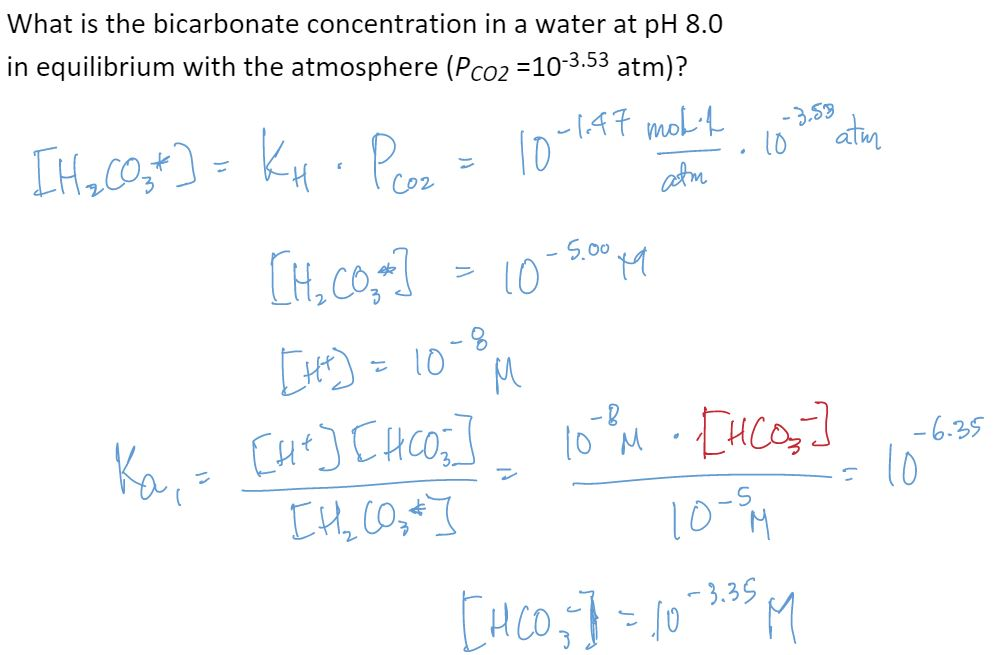 What is the bicarbonate concentration in a water at pH 8.0
in equilibrium with the atmosphere (P_CO2 =10^-3.53 atm)?
[H₂CO₃*] = K_H · P_CO2 = 10^-1.47 mol·L/atm · 10^-3.53 atm
[H₂CO₃*] = 10^-5.00 M
[H⁺] = 10^-8 M
Ka₁ = [H⁺][HCO₃⁻]/[H₂CO₃*] = 10^-8 M · [HCO₃⁻]/10^-5 M = 10^-6.35
[HCO₃⁻] = 10^-3.35 M